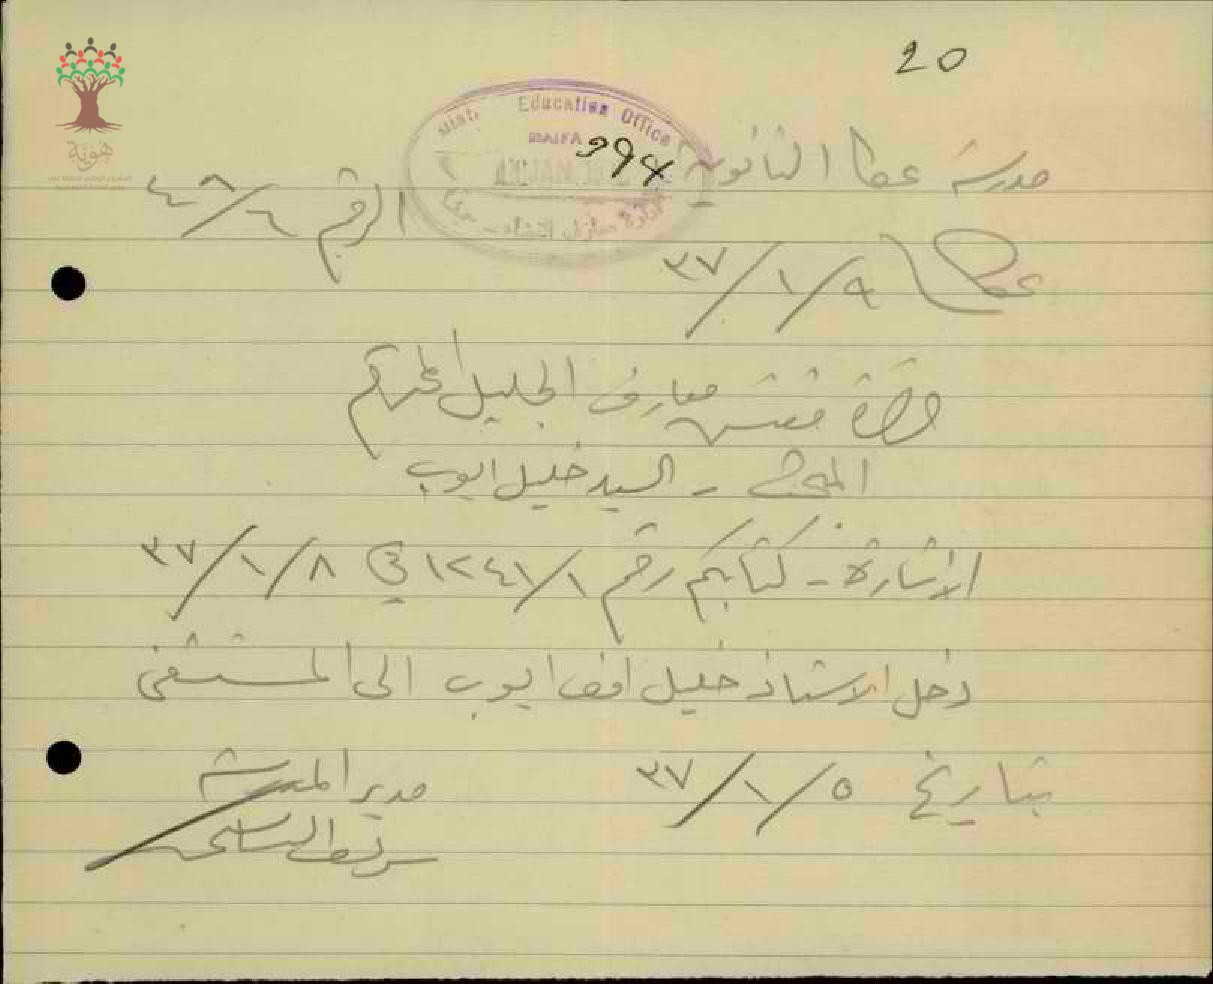 20
هوية
Education Office
HAIFA
394
مدرسة عكا الثانوية
الرقم ٦/٤٨
عكا ٩/١/٣٧
حضرة مفتش معارف الجليل المحترم
المبحث - السيد خليل ايوب
الاشارة - كتابكم رقم ١٢٤١/١ في ٨/١/٣٧
دخل الاستاذ خليل افـ ايوب الى المستشفى
بتاريخ ٥/١/٣٧
مدير المدرسة